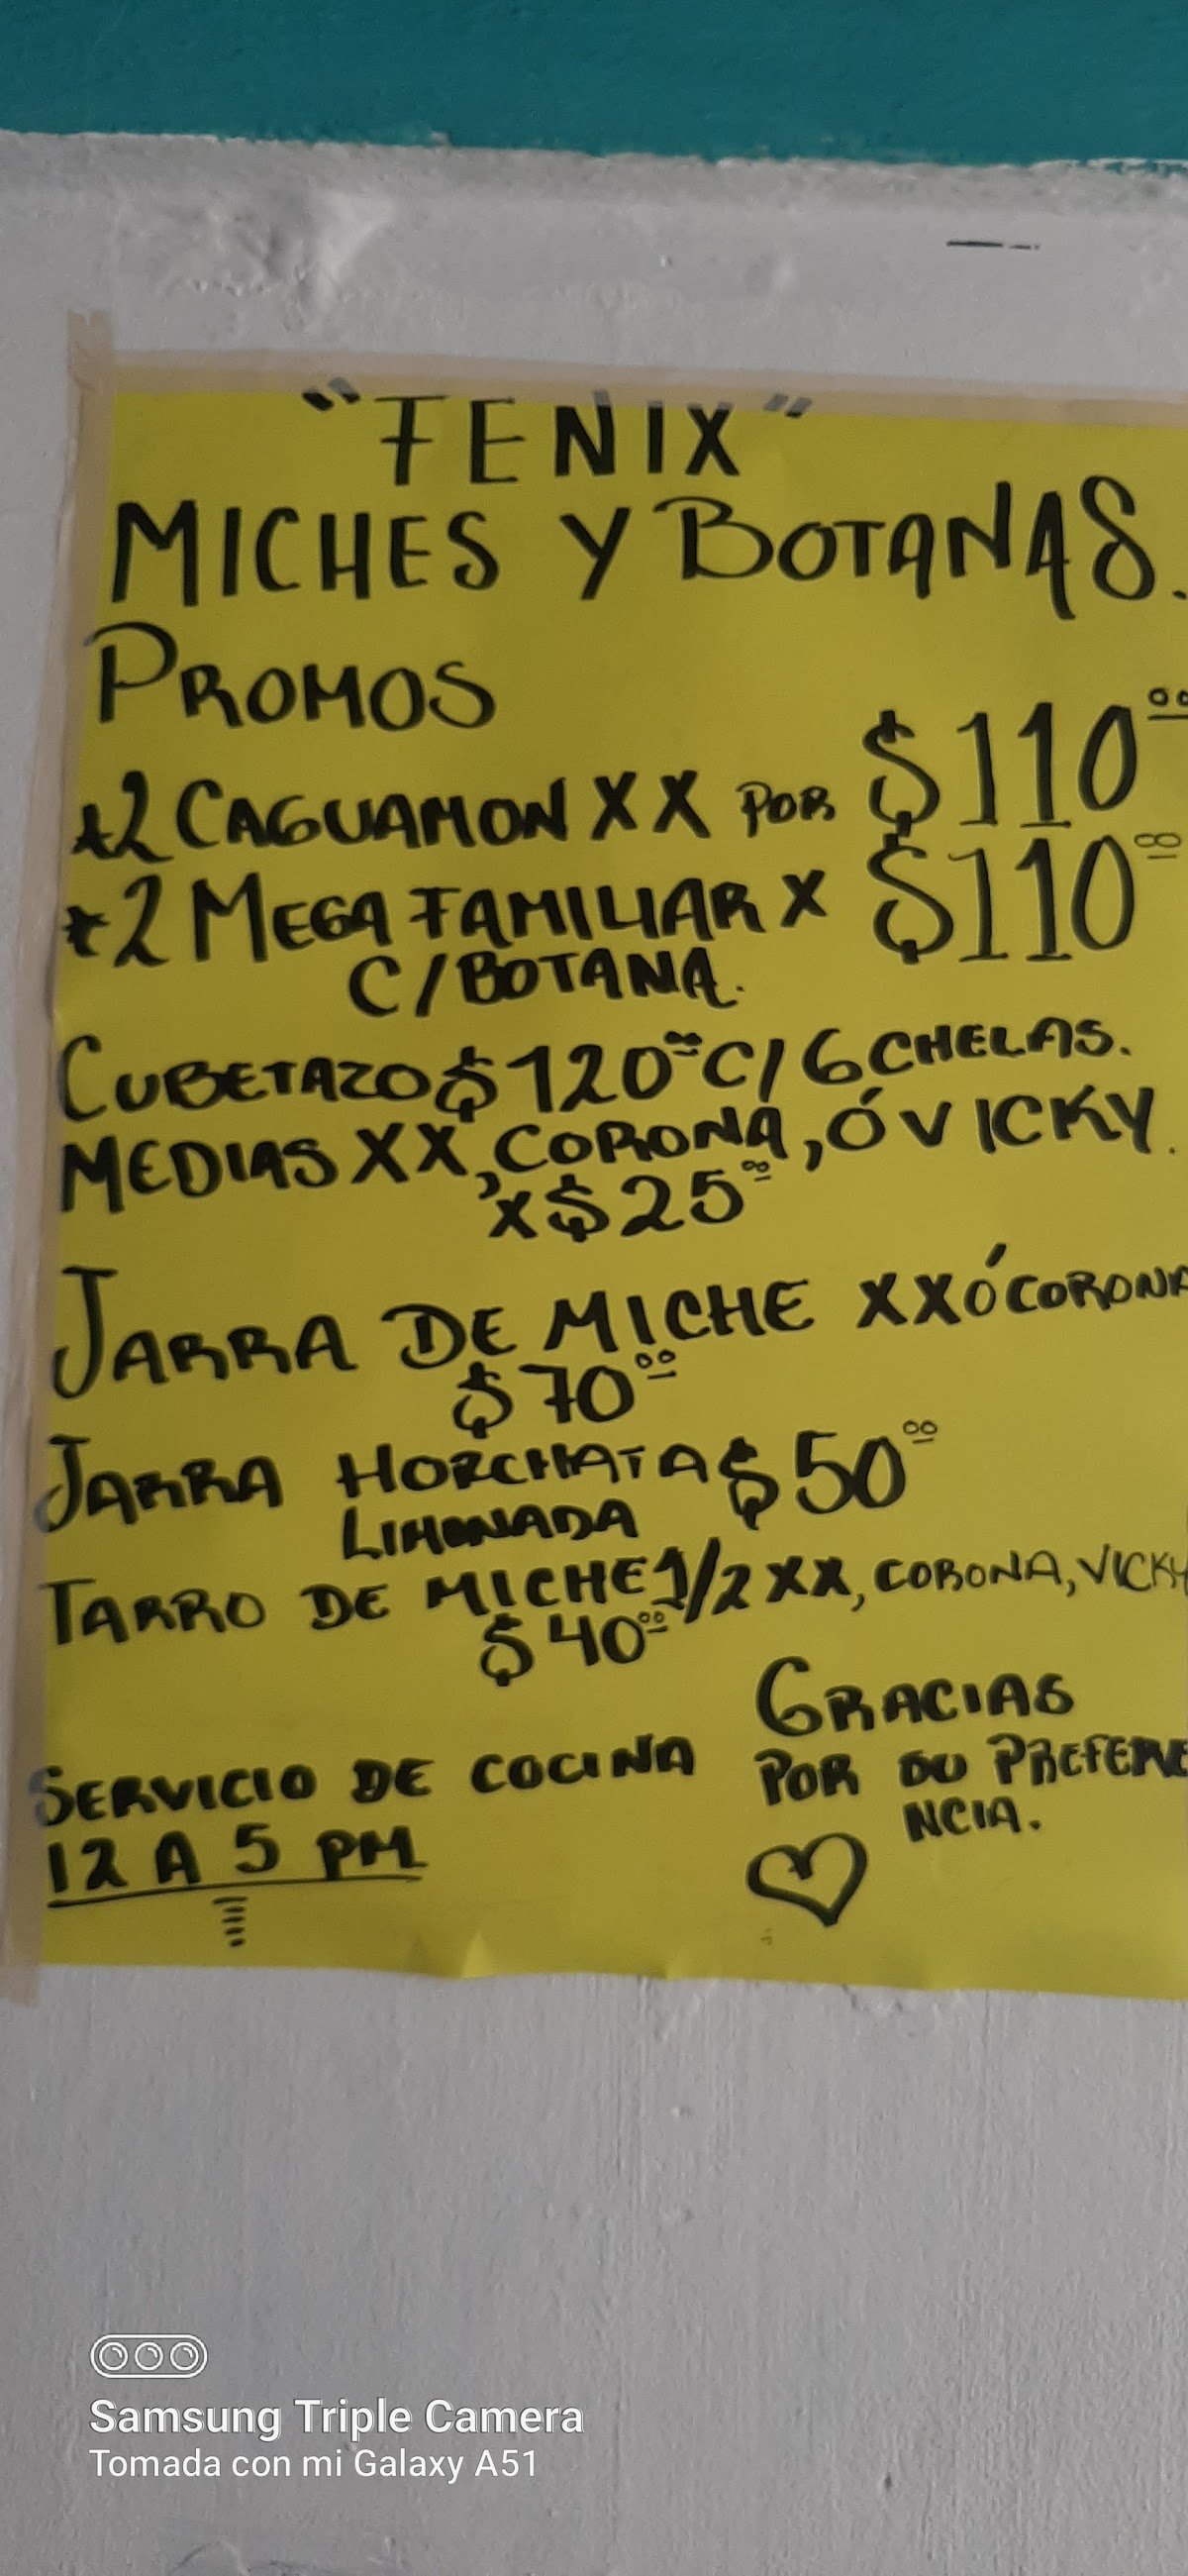 "FENIX"
MICHES Y BOTANAS.
PROMOS
*2 CAGUAMON XX POR $110.00
*2 MEGA FAMILIAR X $110.00
C/BOTANA.
CUBETAZO $120.00 C/ 6 CHELAS.
MEDIAS XX, CORONA, Ó VICKY.
X $25.00
JARRA DE MICHE XX Ó CORONA
$70.00
JARRA HORCHATA $50.00
LIMONADA
TARRO DE MICHE 1/2 XX, CORONA, VICKY
$40.00
SERVICIO DE COCINA
12 A 5 PM
GRACIAS
POR SU PREFERE
NCIA.
Samsung Triple Camera
Tomada con mi Galaxy A51